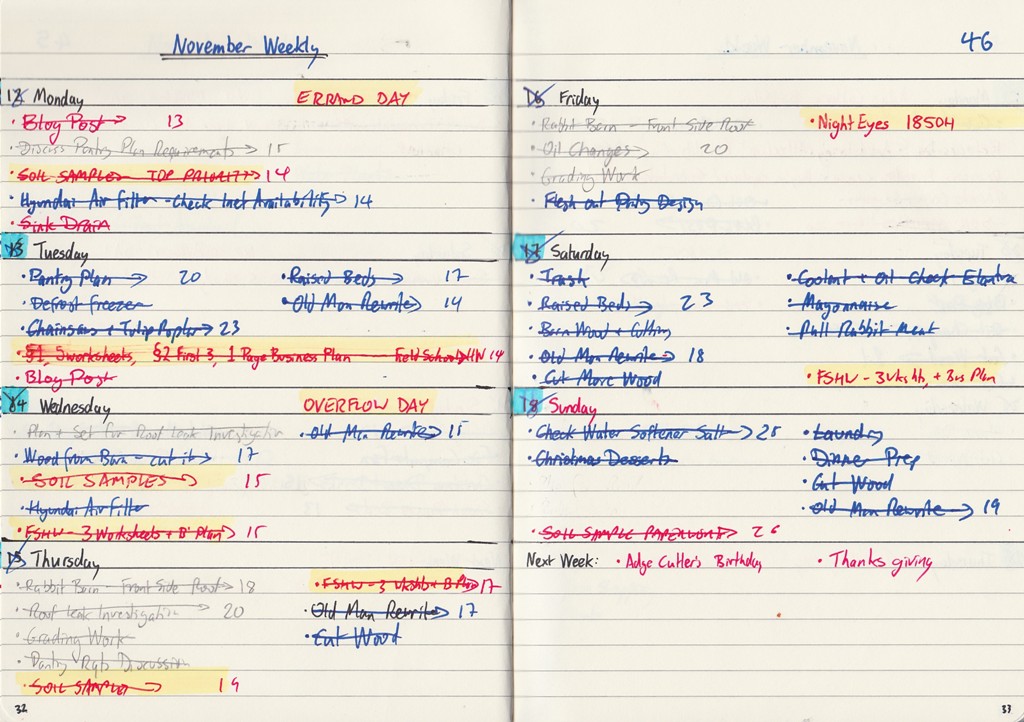 November Weekly
12 Monday ERRAND DAY
• Blog Post → 13
• Discuss Pantry Plan Requirements → 15
• SOIL SAMPLES - TOP PRIORITY → 14
• Hyundai Air Filter - Check Inet Availability → 14
• Sink Drain
13 Tuesday
• Pantry Plan → 20 • Raised Beds → 17
• Defrost Freezer • Old Man Rewrite → 14
• Chainsaw + Tulip Poplar → 23
• §1, 5 worksheets, §2 First 3, 1 Page Business Plan — Field School HW 14
• Blog Post
14 Wednesday OVERFLOW DAY
• Plan + Set for Roof Leak Investigation • Old Man Rewrite → 15
• Wood from Barn - cut it → 17
• SOIL SAMPLES → 15
• Hyundai Air Filter
• FSHW - 3 Worksheets + B Plan → 15
15 Thursday
• Rabbit Barn - Front Side Roof → 18 • FSHW - 3 wksht + B Plan → 17
• Roof Leak Investigation → 20 • Old Man Rewrite → 17
• Grading Work • Cut Wood
• Pantry Rqts Discussion
• SOIL SAMPLES → 19
32
46
16 Friday
• Rabbit Barn - Front Side Roof • Night Eyes 1850H
• Oil Changes → 20
• Grading Work
• Flesh out Pantry Design
17 Saturday
• Trash • Coolant + Oil Check Elantra
• Raised Beds → 23 • Mayonnaise
• Barn Wood + Cutting • Pull Rabbit Meat
• Old Man Rewrite → 18
• Cut More Wood • FSHW - 3 wkshts, + Bus Plan
18 Sunday
• Check Water Softener Salt → 25 • Laundry
• Christmas Desserts • Dinner Prep
• Cut Wood
• Old Man Rewrite → 19
• SOIL SAMPLE PAPERWORK → 26
Next Week: • Adge Cutler's Birthday • Thanksgiving
33